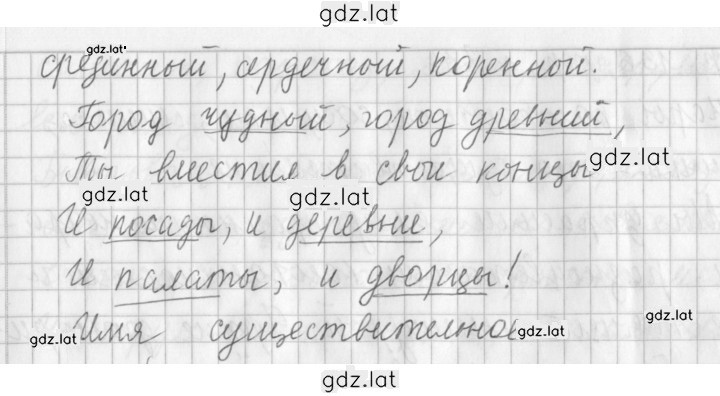 gdz.lat
gdz.lat
срединный, сердечный, коренной.
Город чудный, город древний,
Ты вместил в свои концы
gdz.lat
gdz.lat
gdz.lat
И посады, и деревни,
И палаты, и дворцы!
gdz.lat
Имя существительное
gdz.lat
gdz.lat
gdz.lat